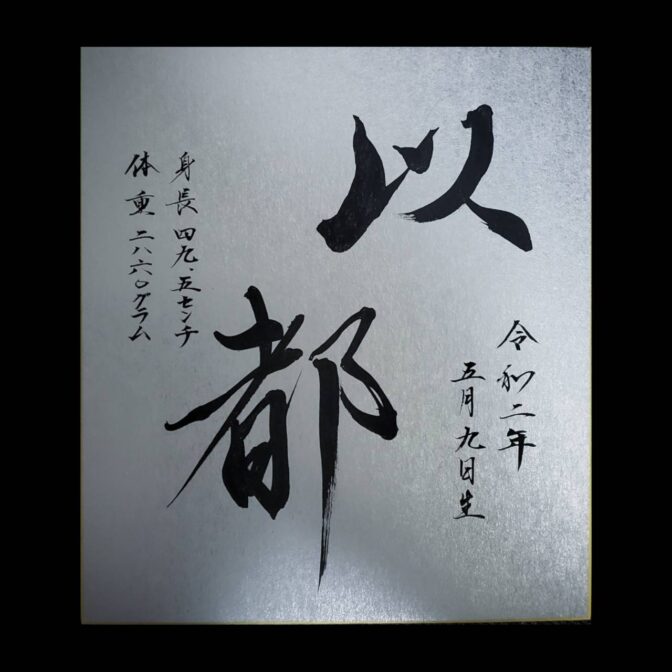 以都
令和二年
五月九日生
身長四九.五センチ
体重二八六〇グラム